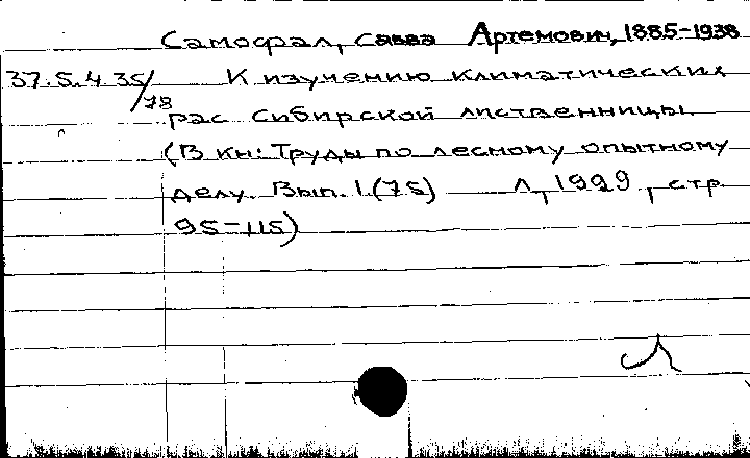 Самофал, Савва Артемович, 1885-1938
37.5.4.35/78 К изучению климатических
рас сибирской лиственницы.
(В кн: Труды по лесному опытному
делу. Вып. 1 (75) Л, 1929, стр
95-115)
Л